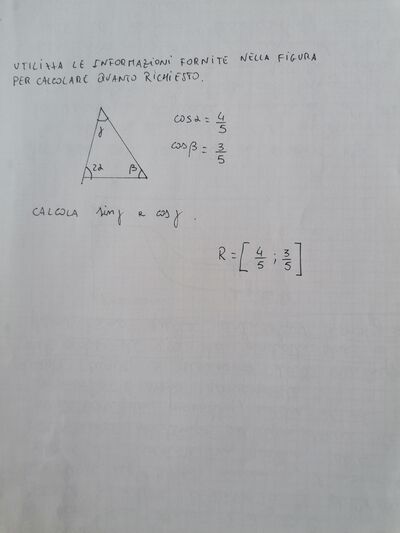 UTILIZZA LE INFORMAZIONI FORNITE NELLA FIGURA
PER CALCOLARE QUANTO RICHIESTO.
cos α = 4/5
cos β = 3/5
γ
2α
β
CALCOLA sin γ e cos γ.
R = [4/5 ; 3/5]